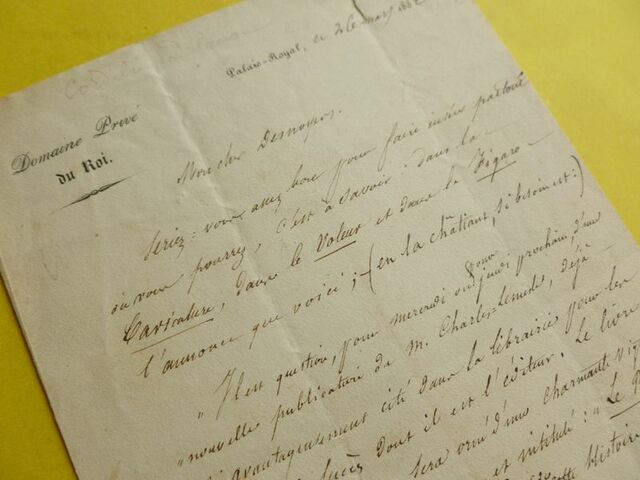 Palais-Royal, le 26 mars 1832
Domaine Privé
du Roi.
Mon cher Desnoyers.
Seriez-vous assez bon pour faire insérer partout
où vous pourrez, c'est à savoir: dans la
Caricature, dans le Voleur et dans le Figaro
l'annonce que voici; (en la châtiant, si besoin est:)
"Il est question, pour mercredi ou jeudi prochain, d'une
"nouvelle publication de M. Charles Lemesle, déjà
avantageusement cité dans la librairie pour les
dont il est l'éditeur. Le livre
sera orné d'une charmante
et intitulé: "Le
histoire